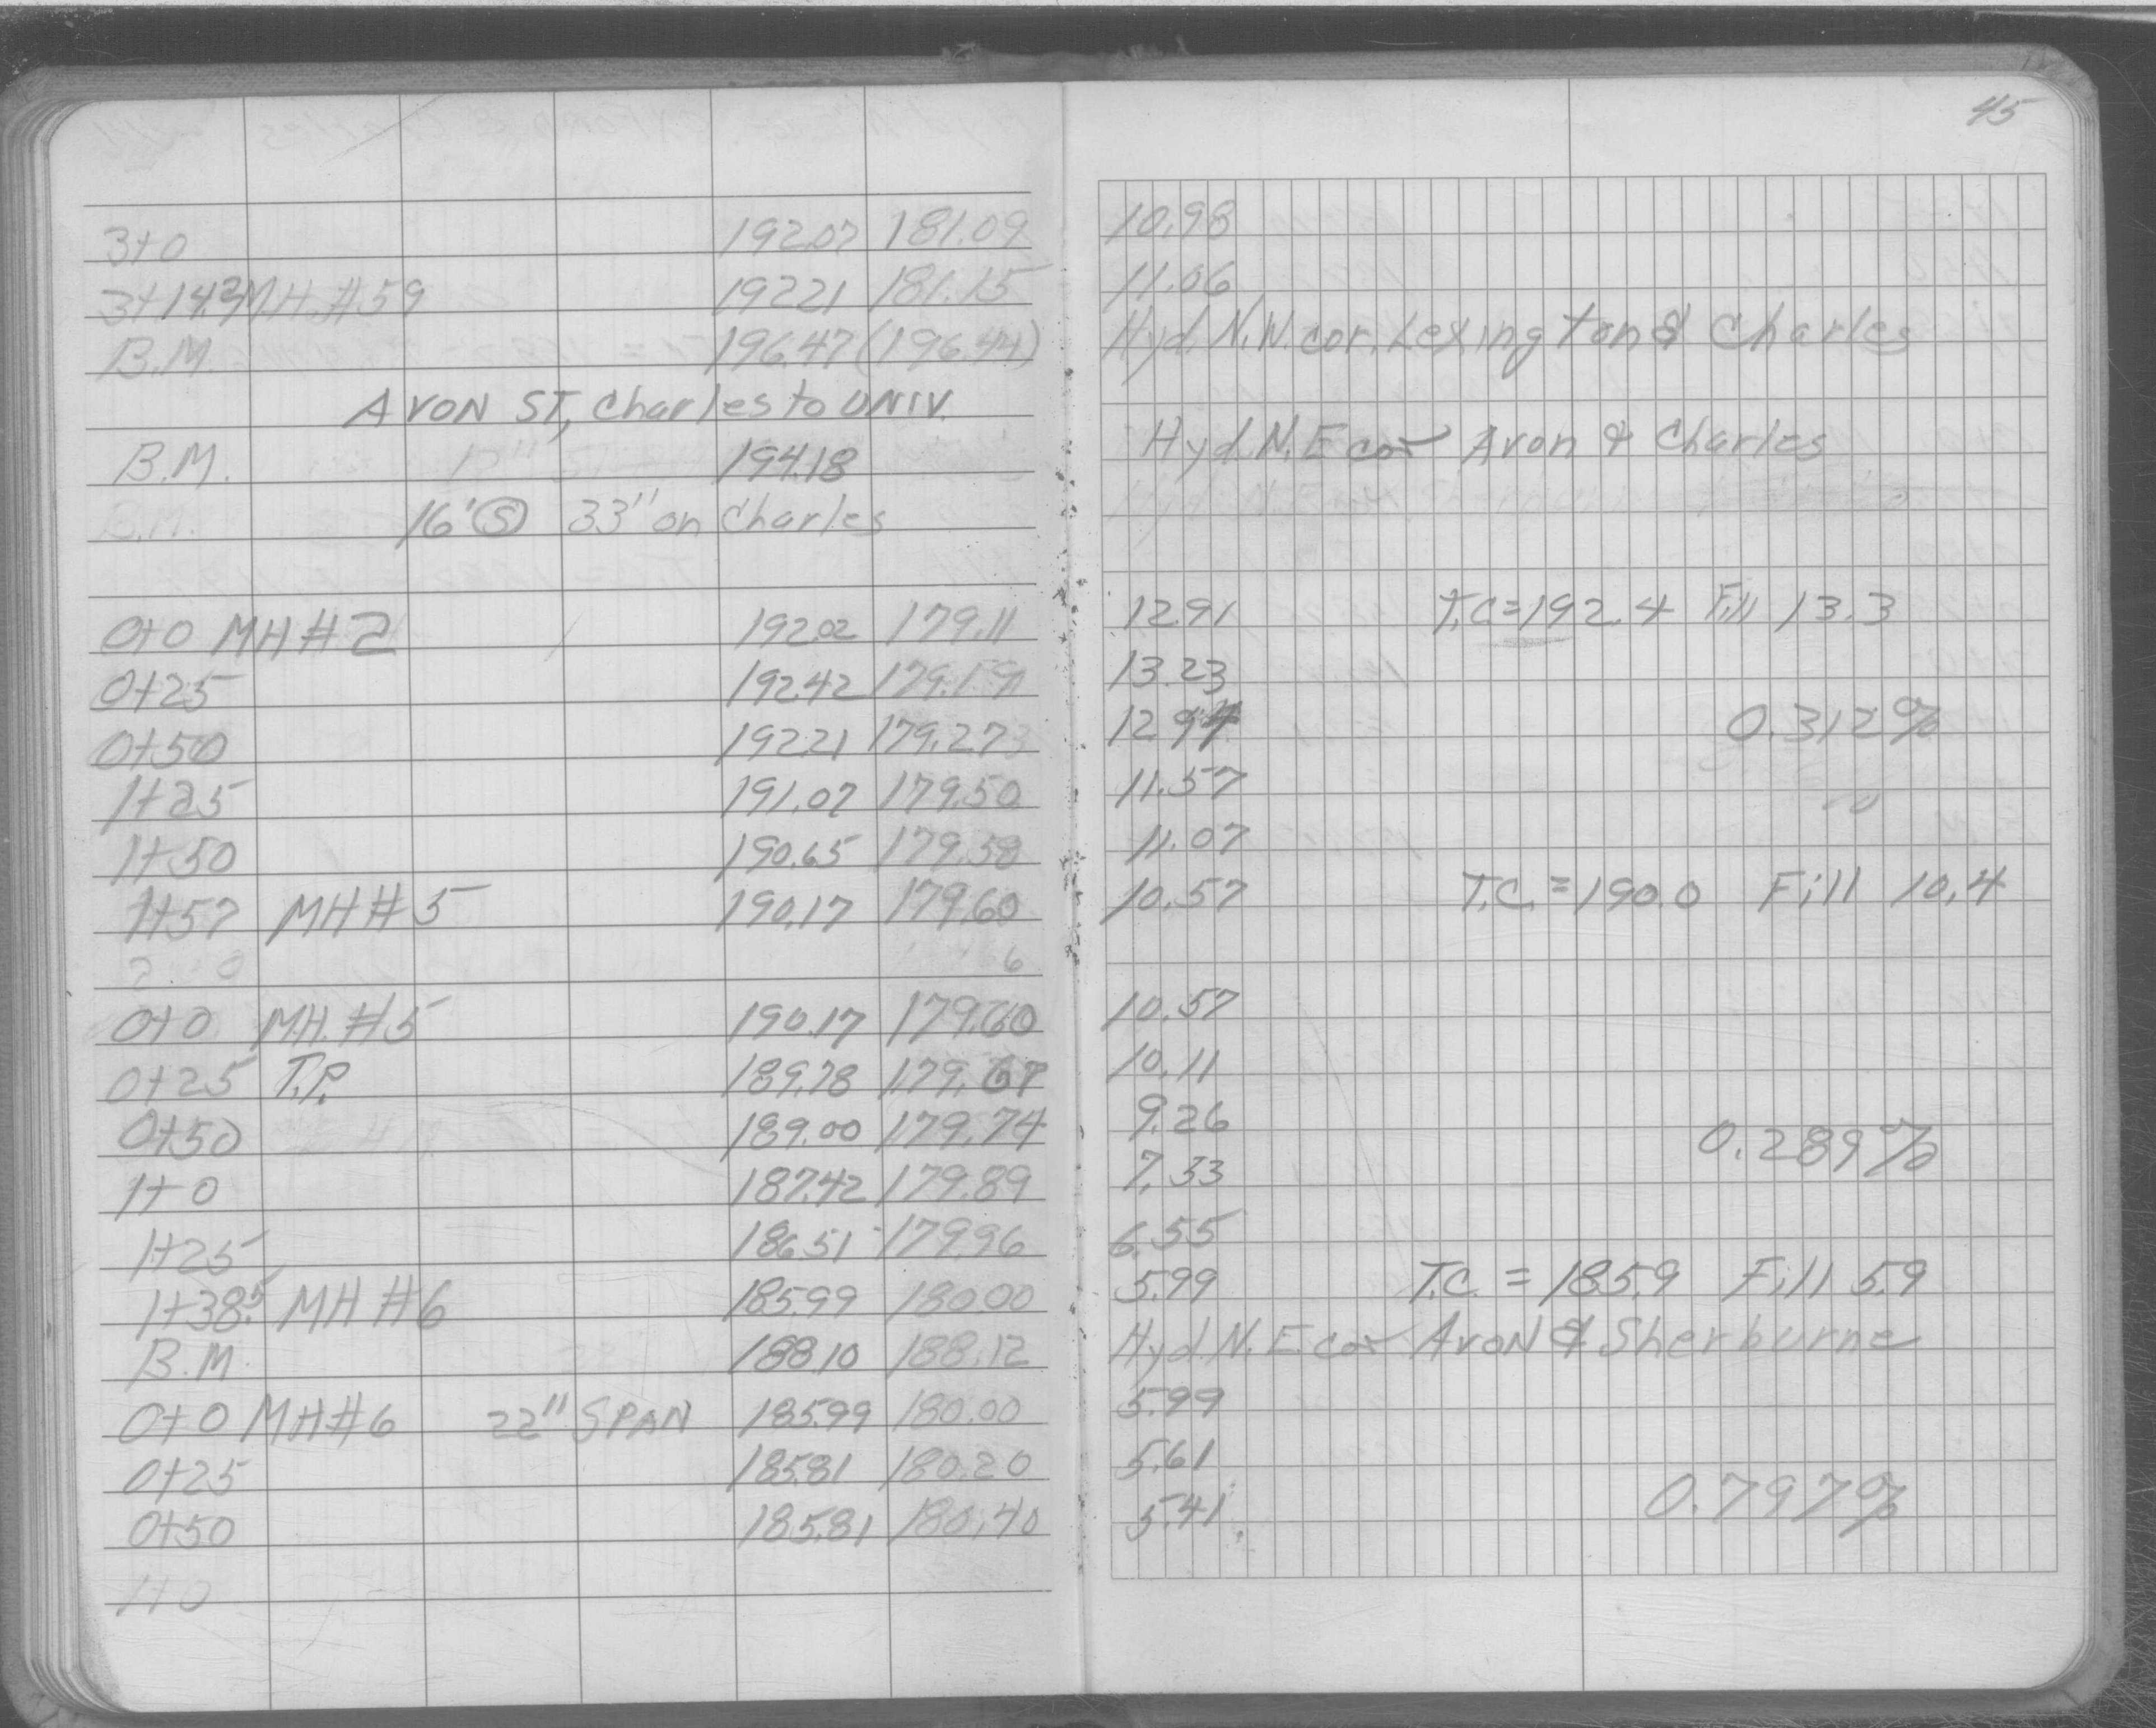 45
3+0 192.07 181.09 10.98
3+14.3 MH.#59 192.21 181.15 11.06
B.M. 196.47 (196.44) Hyd. N.W. cor. Lexington & Charles
AVON ST, Charles to UNIV.
B.M. 194.18 Hyd. N.E cor Avon & Charles
16' Ⓢ 33" on Charles
0+0 MH #2 192.02 179.11 12.91 T.C=192.4 Fill 13.3
0+25 192.42 179.19 13.23
0+50 192.21 179.27 12.94 0.312%
1+25 191.07 179.50 11.57
1+50 190.65 179.58 11.07
1+57 MH #5 190.17 179.60 10.57 T.C. = 190.0 Fill 10.4
0+0 MH. #5 190.17 179.60 10.57
0+25 T.P. 189.78 179.67 10.11
0+50 189.00 179.74 9.26 0.289%
1+0 187.42 179.89 7.53
1+25 186.51 179.96 6.55
1+38.5 MH #6 185.99 180.00 5.99 T.C. = 185.9 Fill 5.9
B.M. 188.10 188.12 Hyd. N.E cor Avon & Sherburne
0+0 MH#6 22" SPAN 185.99 180.00 5.99
0+25 185.81 180.20 5.61
0+50 185.81 180.40 5.41 0.797%
1+0